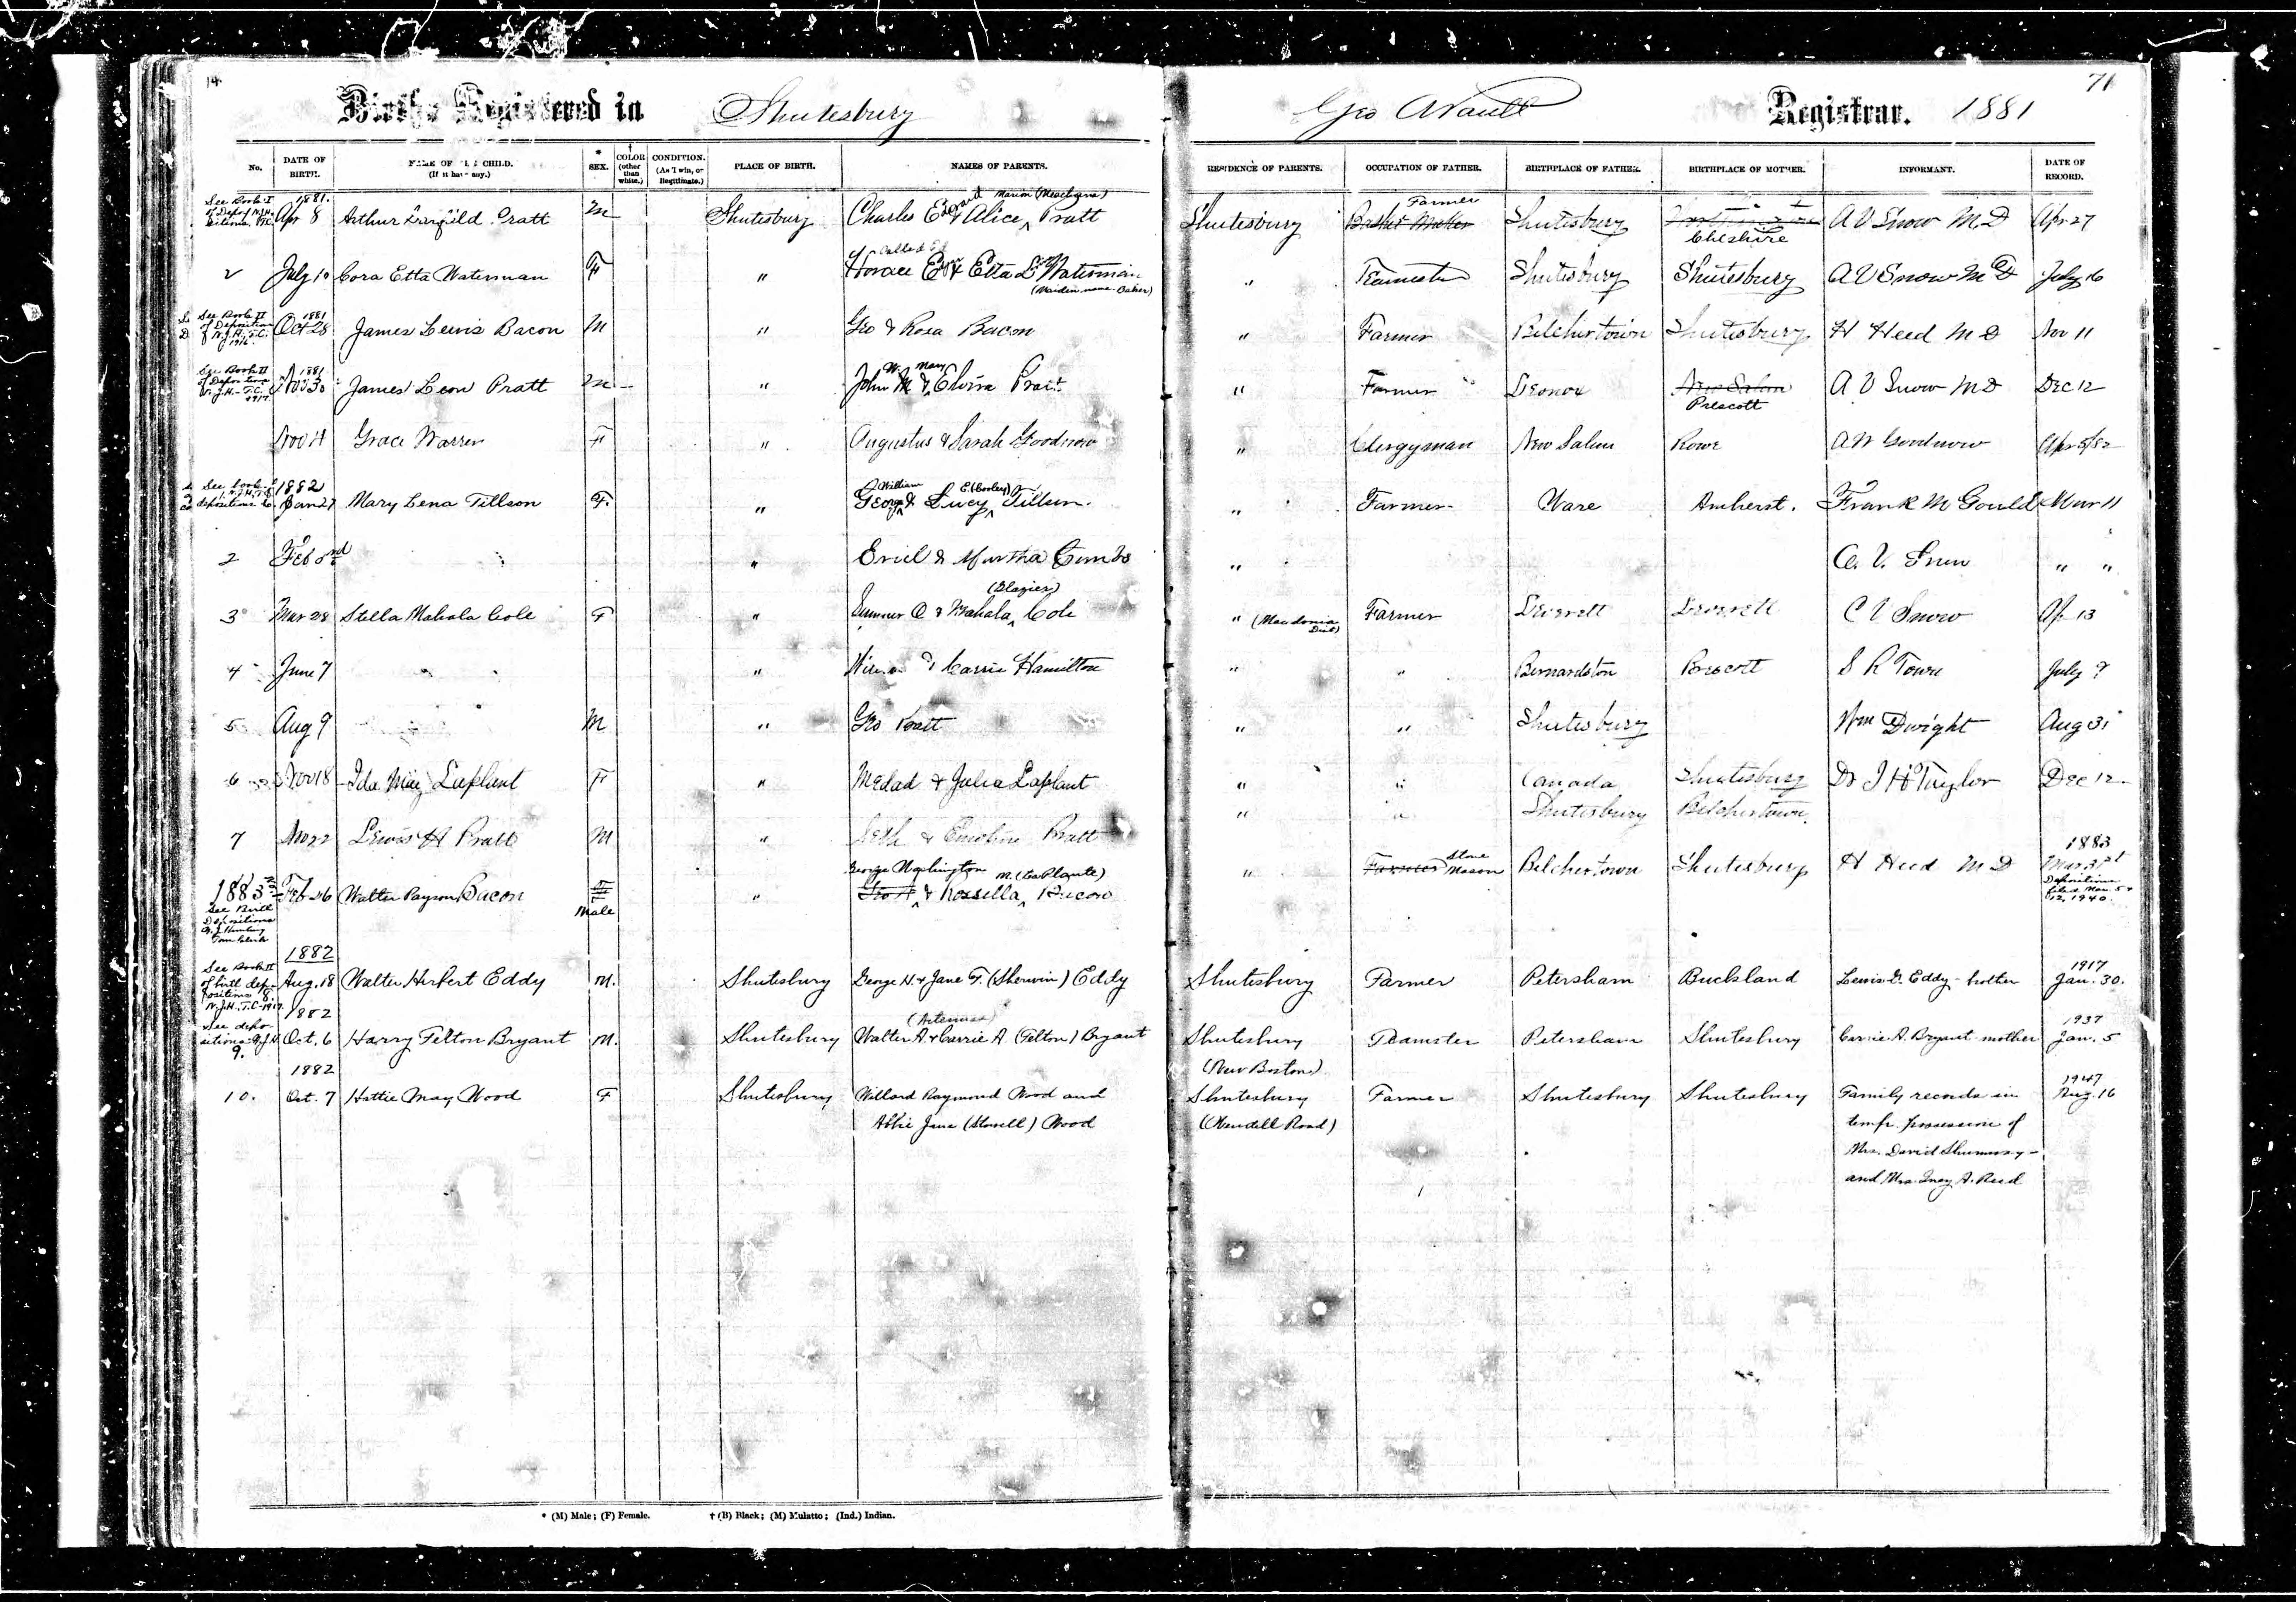 14 71
Births Registered in Shutesbury Geo A Registrar. 1881
No. DATE OF BIRTH. NAME OF CHILD. (If it have any.) * SEX. † COLOR (other than white.) CONDITION. (As Twin, or Illegitimate.) PLACE OF BIRTH. NAMES OF PARENTS. RESIDENCE OF PARENTS. OCCUPATION OF FATHER. BIRTHPLACE OF FATHER. BIRTHPLACE OF MOTHER. INFORMANT. DATE OF RECORD.
See Book I 1881. Marion (Meacham) Farmer
Apr 8 Arthur Garfield Pratt M Shutesbury Charles Edward & Alice Pratt Shutesbury Basket Maker Shutesbury A V Snow M D Apr 27
Cheshire
Called Ed
2 July 10 Cora Etta Waterman F " Horace E & Etta L Waterman " Teamster Shutesbury Shutesbury A V Snow M D July 16
(Maiden name Baker)
See Book II 1881
of Deposition Oct 28 James Lewis Bacon M " Geo & Rosa Bacon " Farmer Belchertown Shutesbury H Heed M D Nov 11
N.J.H., T.C. 1916.
See Book II 1881 W. Mary
of Depositions Nov 30 James Leon Pratt M " John M & Elvira Pratt " Farmer Lenox New Salem A V Snow M D Dec 12
N.J.H. - T.C. 1917. Prescott
Nov 4 Grace Warren F " Augustus & Sarah Goodnow " Clergyman New Salem Rowe A W Goodnow Apr 5/82
See book 1882 William E. (Cooley)
depositions Jan 27 Mary Lena Tillson F. " George & Lucy Tillson. " Farmer Ware Amherst. Frank M Gould Mar 11
2 Feb 3rd " & Martha " A. V. Snow " "
(Glazier)
3 Mar 28 Stella Mahala Cole F " Sumner O & Mahala Cole " (Macedonia Dist) Farmer Leverett Leverett C V Snow Ap 13
4 June 7 " & Carrie Hamilton " " Bernardston Prescott S R Town July 9
5 Aug 9 M " Geo Pratt " " Shutesbury Wm Dwight Aug 31
6 Nov 18 Ida May Laplant F " Medad & Julia Laplant " " Canada Shutesbury Dr J H Taylor Dec 12
7 Nov 22 Lewis H Pratt M " Seth & Emeline Pratt " " Shutesbury Belchertown.
George Washington M. (La Plante) Stone 1883
1883 Feb 26 Walter Payson Bacon Male " Geo W & Rossella Bacon " Farmer Mason Belchertown Shutesbury H Heed M D Mar 31st
See Birth Depositions Depositions filed Mar. 5 & 12, 1940.
Town Clerk
1882
See Book II
of birth depositions Aug. 18 Walter Herbert Eddy M. Shutesbury George H. & Jane F. (Sherwin) Eddy Shutesbury Farmer Petersham Buckland Lewis G. Eddy - brother 1917 Jan. 30.
8. N.J.H., T.C. 1917.
1882 (Artemas)
See depositions 9. Oct. 6 Harry Felton Bryant M. Shutesbury Walter A. & Carrie A (Felton) Bryant Shutesbury Teamster Petersham Shutesbury Carrie A. Bryant mother 1937 Jan. 5
1882 (New Boston)
10. Oct. 7 Hattie May Wood F Shutesbury Willard Raymond Wood and Shutesbury Farmer Shutesbury Shutesbury Family records in 1947 Aug. 16
Abbie Jane (Stowell) Wood (Wendell Road) temp. possession of
Mrs. David Shumway -
and Mrs. Inez A. Reed
* (M) Male; (F) Female. † (B) Black; (M) Mulatto; (Ind.) Indian.